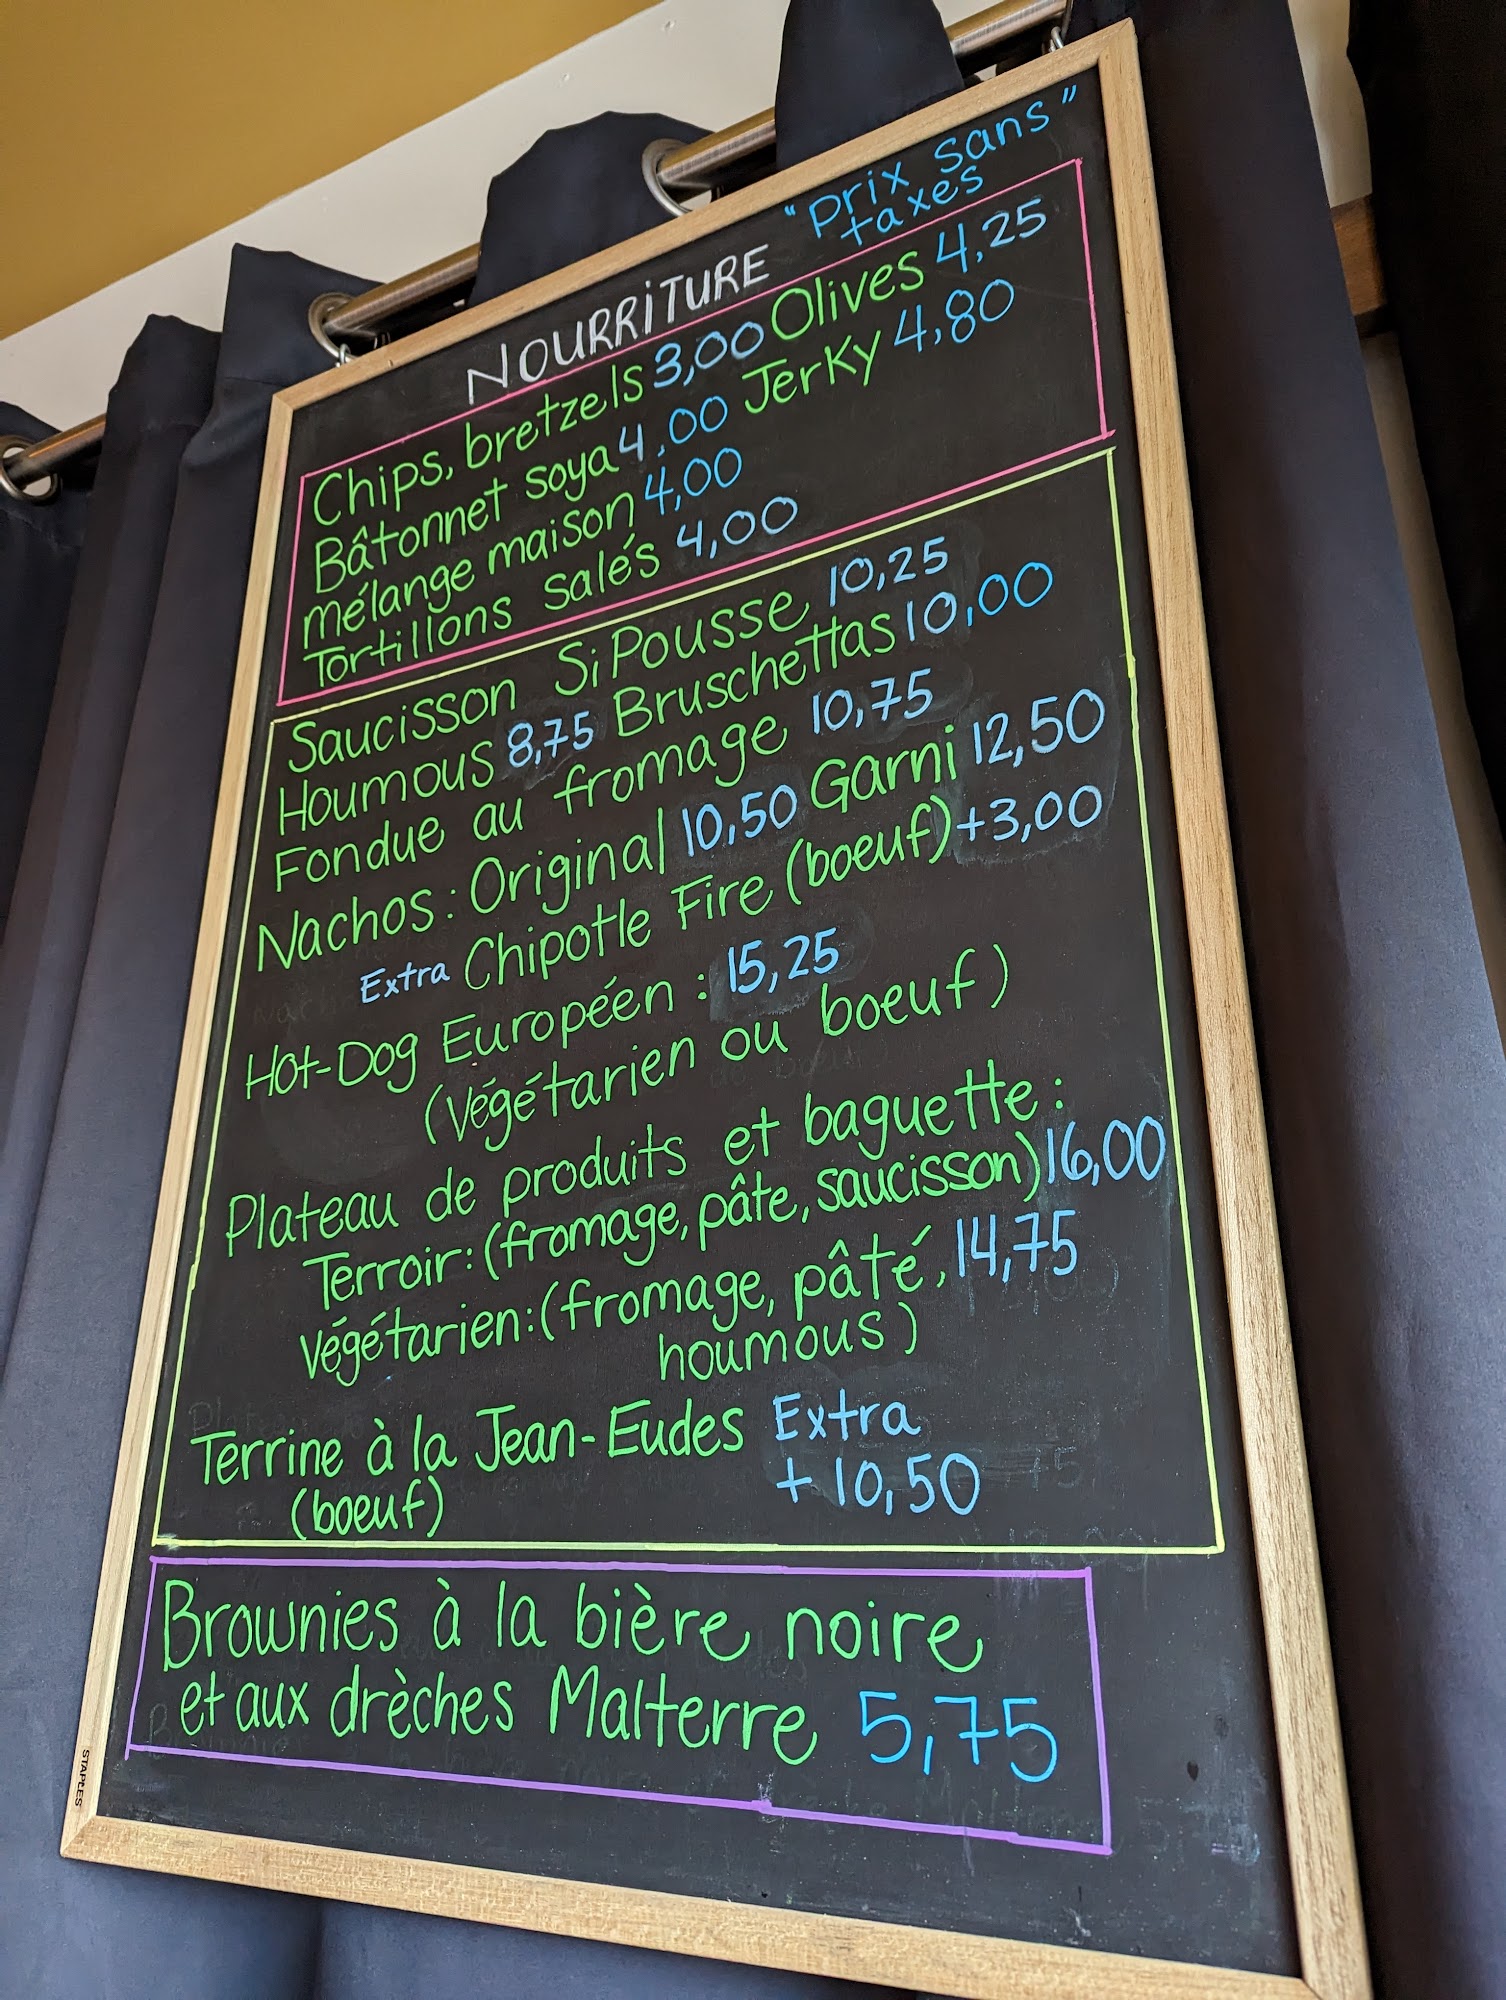 "Prix sans
taxes"
NOURRiTURE
Chips, bretzels 3,00 Olives 4,25
Bâtonnet soya 4,00 Jerky 4,80
mélange maison 4,00
Tortillons salés 4,00
Saucisson SiPousse 10,25
Houmous 8,75 Bruschettas 10,00
Fondue au fromage 10,75
Nachos: Original 10,50 Garni 12,50
Extra Chipotle Fire (boeuf) +3,00
Hot-Dog Européen : 15,25
(végétarien ou boeuf)
Plateau de produits et baguette :
Terroir: (fromage, pâte, saucisson) 16,00
végétarien: (fromage, pâté, 14,75
houmous)
Terrine à la Jean-Eudes Extra
(boeuf) + 10,50
Brownies à la bière noire
et aux drèches Malterre 5,75
STAPLES